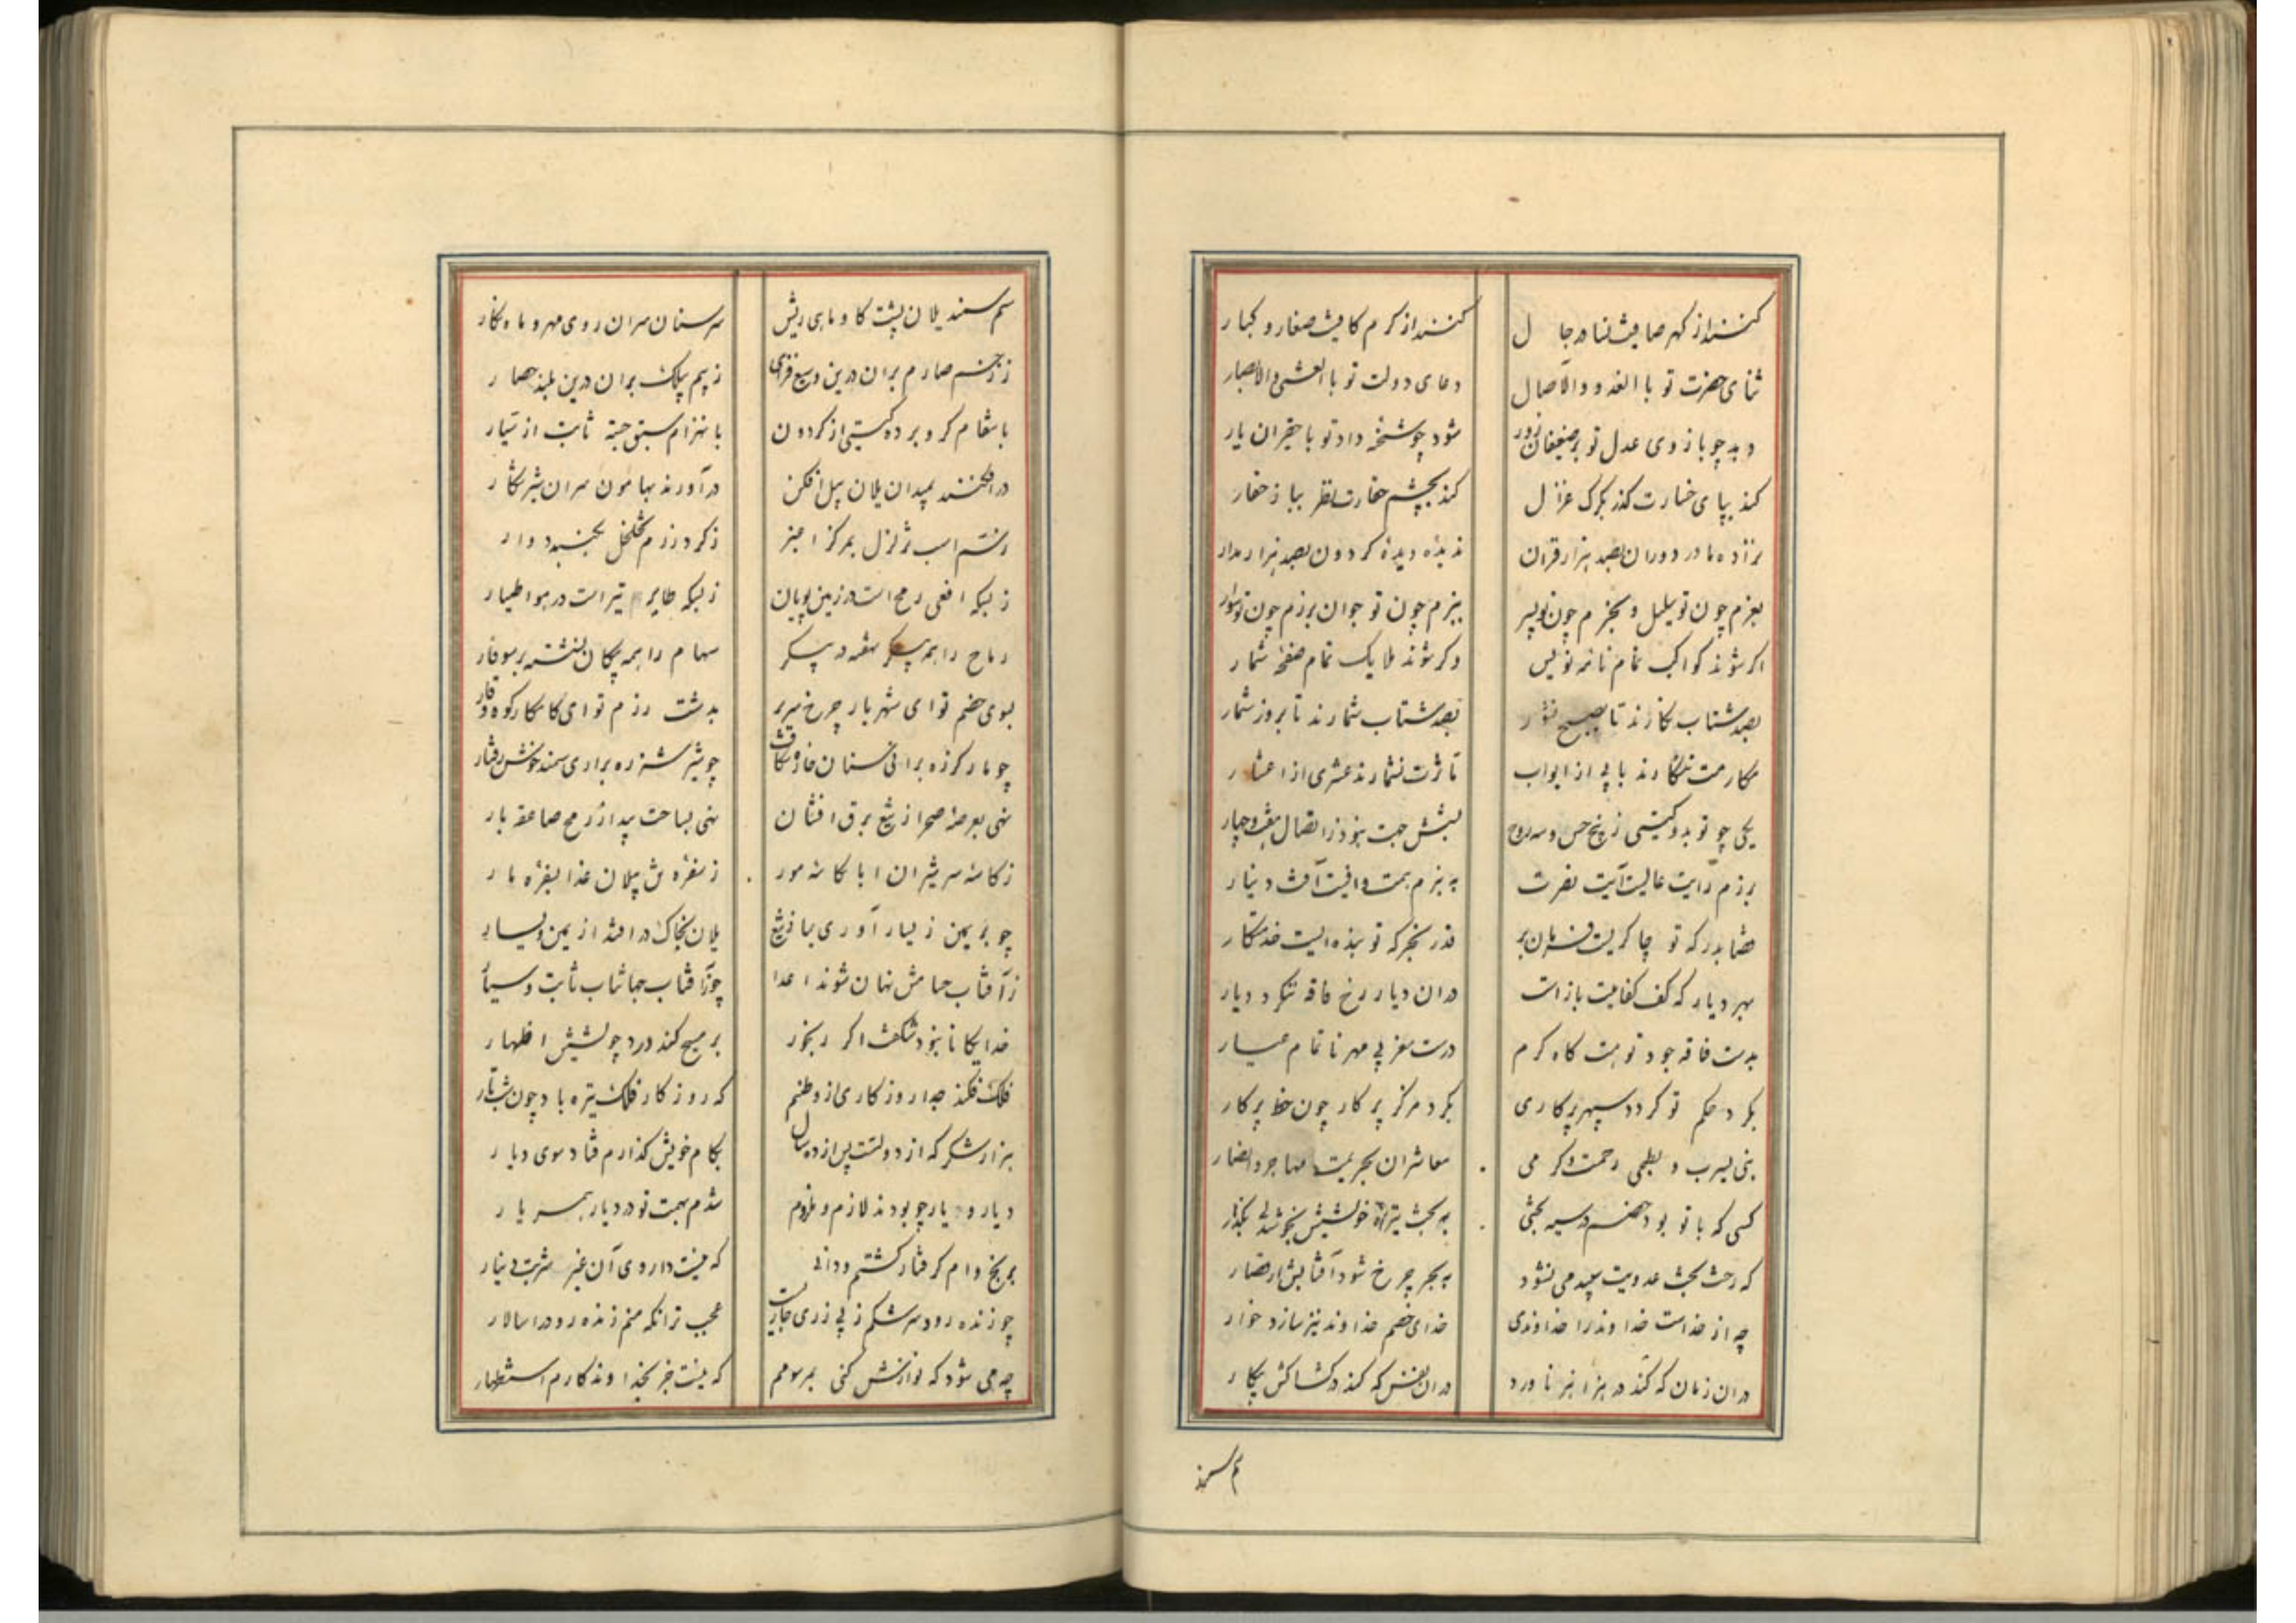 کنند از کهر صافیت نثار رجال
کنند از کرم کافیت صغار و کبار
ثنای حضرت تو بالغدو والآصال
دعای دولت تو بالعشی والابصار
دهد چو بازوی عدل تو بر ضعیفان زور
شود چو شخنه داد تو با حقیران یار
کند بپای خسارت کذر بکرک غزال
کند بچشم حقارت نظر بباز حقار
نزاده مادر دوران بصد هزار قران
ندیده دیده کردون بصد هزار مدار
بعزم چون تو یلیل و بحزم چون تو پیر
ببزم چون تو جوان برزم چون تو سوار
اکر شوند کواکب تمام نامه نویس
وکر شوند ملایک تمام صفحه شمار
بصد شتاب نکارند تا بصبح نشور
بصد شتاب شمارند تا بروز شمار
مکارمت ننکارند بابی از ابواب
مآثرت نشمارند عشری از اعشار
یکی چو تو بدو کیتی ز پنج حس و سه روح
بشش جهت نبود ز اتصال هفت و چهار
برزم رایت عالیت آیت نصرت
به بزم همت وافیت آفت دینار
قضا بدرکه تو چاکریست فرمان بر
قدر بحجرکه تو بنده ایست خدمتکار
بهر دیار که کف کفایت باز است
در ان دیار رخ فاقه ننکرد دیار
بدست فاقه جود تو هست کاه کرم
درست مغربی مهر ناتمام عیار
بکرد حکم تو کردد سپهر پرکاری
بکرد مرکز پرکار چون خط پرکار
نبی یثرب و بطحی رحمت و کرمی
معاشران بحریمت مهاجر و انصار
کسی که با تو بود خصم در سیه بختی
به بخت تیره خویشش ببخش و بکذار
که رخت بخت عدویت سپید می نشود
به بحر چرخ شود آفتابش ار قصار
چه از خداست خداوند را خداوندی
خدای خصم خداوند نیز سازد خوار
در ان زمان که کند در هزاهز ناورد
در ان نفس که کند در کشاکش پیکار
سم سمند
سم سمند یلان پشت کاو و ماهی ریش
سر سنان سران روی مهر و ماه نکار
ز زخم صارم بران درین وسیع فزای
ز بیم بیلک بران درین بلند حصار
بانتقام کرو برده کیتی از کردون
بانهزام سبق جسته ثابت از سیار
در افکنند بمیدان یلان پیل افکن
در آورند بهامون سران شیر شکار
ز سم اسب تزلزل بمرکز اغبر
ز کرد رزم تخلخل بکنبد دوار
ز بسکه افعی رمح است در زمین پویان
ز بسکه طایر تیر است در هوا طیار
رماح را همه پیکر نهفته در پیکر
سهام را همه پیکان نشسته بر سوفار
بسوی خصم تو ای شهریار چرخ سریر
بدشت رزم تو ای کامکار کوه وقار
چو مار کرزه برانی سنان خاره شکافت
چو شیر شرزه براری سمند خوش رفتار
نهی بعرصه صحرا ز تیغ برق افشان
نهی بساحت پیدا ز رمح صاعقه بار
ز کاسه سر شیران ابا بکاسه مور
ز سفره ش پیلان غذا بسفره مار
چو بر یمین ز یسار آوری بیازی تیغ
یلان بخاک در افتد از یمین و یسار
ز آفتاب حسامش نهان شوند اعدا
چو ز آفتاب جهانتاب ثابت و سیار
خدایکانا نبود شکفت اکر رنجور
بر مسیح کند درد خویش اظهار
فلک فکند جدا روزکاری از وطنم
که روزکار فلک تیره باد چون شب تار
هزار شکر که از دولتت پس از ده سال
بکام خویش کذارم فتاد سوی دیار
دیار و یار چو بودند لازم و ملزوم
شدم بهمت تو در دیار همسر یار
برنج وام کرفتار کشتم و دانی
که نیست داروی آن غیر شربت دینار
چو زنده رود سرشکم ز بی زری جاریست
عجب تر انکه منم زنده رود را سالار
چه می شود که نوازش کنی بمرسومم
که نیست جز بخداوند کارم استظهار